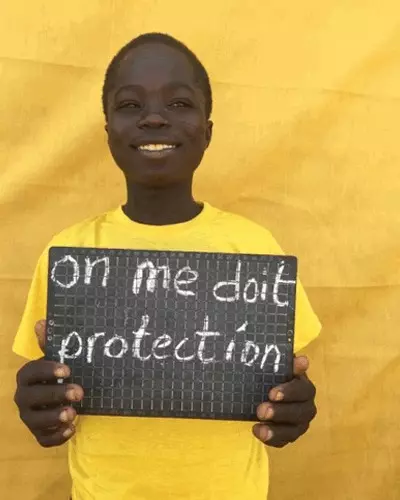 on me doit
protection